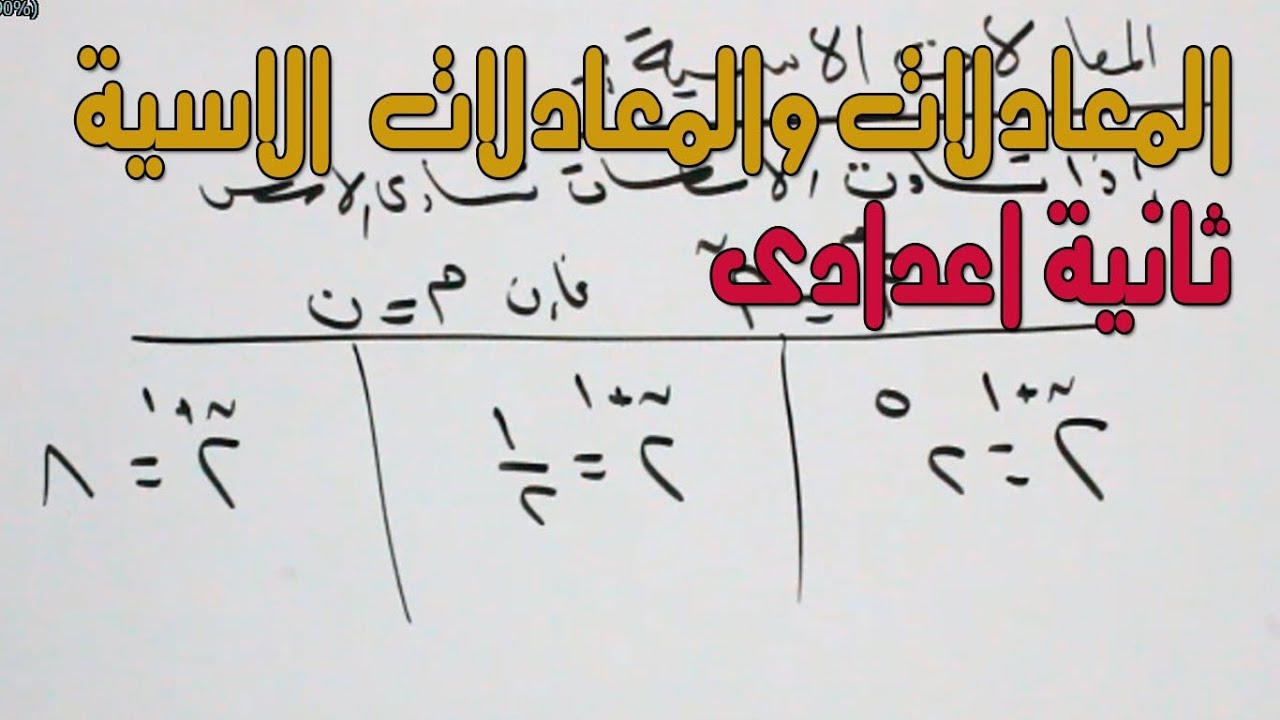 00%)
المعادلات الاسية
المعادلات والمعادلات الاسية
إذا تساوت الاساسات تساوى الاسس
ثانية اعدادى
فإن م = ن
٢^(ن+١) = ٢^٥
٢^(ن+١) = ١/٢
٢^(ن+١) = ٨